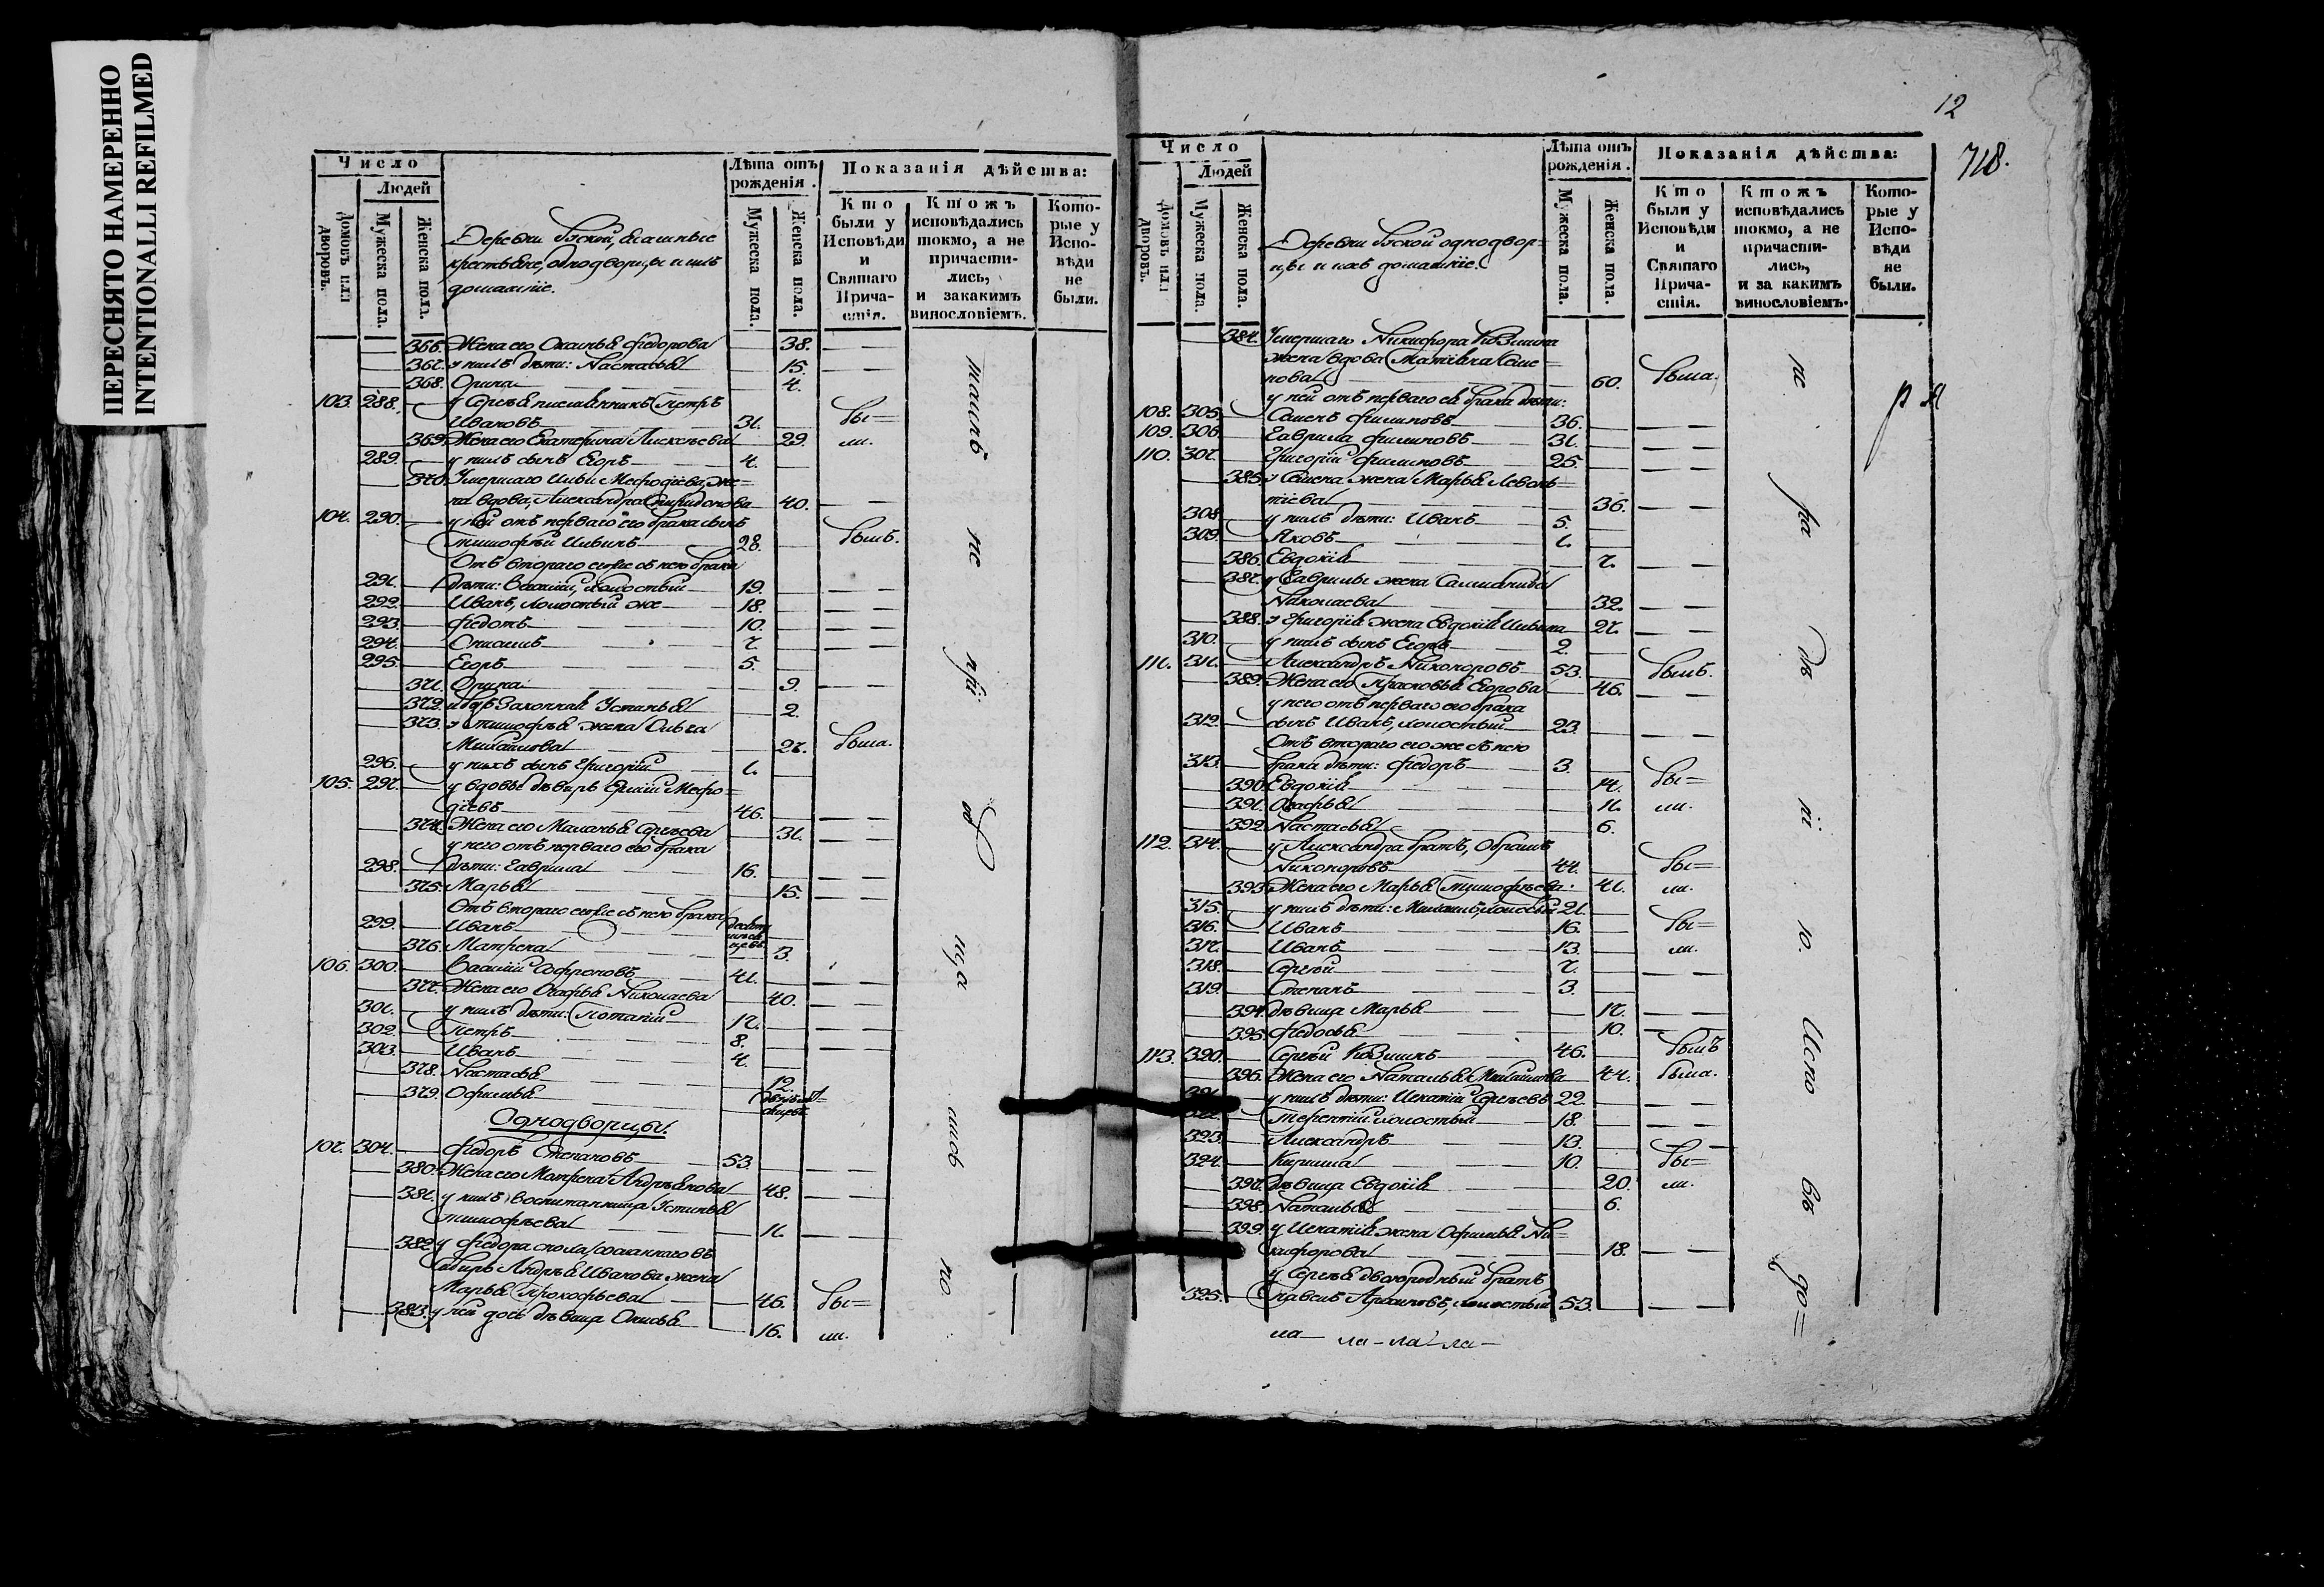 ПЕРЕСНЯТО НАМЕРЕННО
INTENTIONALLI REFILMED
Число
Людей
Домовъ или дворовъ.
Мужеска пола.
Женска пола.
крестьяне, однодворцы и ихъ
домашніе.
Лѣта отъ рожденія.
Мужеска пола.
Женска пола.
Показанія дѣйства:
Кто были у Исповѣди и Святаго Прича-стія.
Ктожъ исповѣдались токмо, а не причасти-лись, и закакимъ винословіемъ.
Кото-рые у Испо-вѣди не были.
366. Жена его Федорова 38.
367. у нихъ дѣти: Настасья 15.
368. Орина 4.
103. 288. у Сергѣя Петръ
Ивановъ 31. бы=
369. Жена его Екатерина Алексѣева 29. ли.
289. у нихъ сынъ Егоръ 4.
370. Умершаго Мефодіева, же=
на вдова, Александра Спиридонова 40.
104. 290. у ней отъ перваго его брака сынъ
Тимофѣй 28. былъ.
Отъ втораго его же съ нею брака
291. дѣти: Василій, холостый 19.
292. Иванъ, холостый же 18.
293. Федотъ 10.
294. 7.
295. Егоръ 5.
371. Орина 9.
372. Устинья 2.
373. у Тимофѣя жена Ольга
Михайлова 27. была.
296. у нихъ сынъ Григорій 1.
105. 297. у вдовы деверь Мефо=
діевъ 46.
374. Жена его Маланья Сергѣева 31.
у него отъ перваго его брака
298. дѣти: Гаврила 16.
375. Марья 15.
Отъ втораго его же съ нею брака
299. Иванъ
376. Матрена 3.
106. 300. Василій Софроновъ 41.
377. Жена его Агафья Николаева 40.
301. у нихъ дѣти: Потапій 17.
302. Петръ 8.
303. Иванъ 4.
378. Настасья 12.
379. Офимья
Однодворцы.
107. 304. Федоръ Степановъ 53.
380. Жена его Матрена Андреянова 48.
381. у нихъ воспитанница Устинья
Тимофѣева 11.
382. у Федора сосланнаго въ
Сибирь Андрея Иванова жена
Марья Прокофьева 46. бы=
383. у ней дочь дѣвица 16. ли.
12
718.
Число
Людей
Домовъ или дворовъ.
Мужеска пола.
Женска пола.
однодвор=
цы и ихъ домашніе.
Лѣта отъ рожденія.
Мужеска пола.
Женска пола.
Показанія дѣйства:
Кто были у Исповѣди и Святаго Прича-стія.
Ктожъ исповѣдались токмо, а не причасти-лись, и за какимъ винословіемъ.
Кото-рые у Испо-вѣди не были.
384. Умершаго Никифора Козмина
жена вдова Семе=
нова 60. была.
у ней отъ перваго ея брака дѣти:
108. 305. Семенъ Филиповъ 36.
109. 306. Гаврила Филиповъ 31.
110. 307. Григорій Филиповъ 25.
385. у Семена жена Марья Левонь=
тіева 36.
308. у нихъ дѣти: Иванъ 5.
309. Яковъ 1.
386. Евдокія 7.
387. у Гаврилы жена
Николаева 32.
388. у Григорія жена Евдокія 27.
310. у нихъ сынъ Егоръ 2.
111. 311. Александръ Никоноровъ 53. былъ.
389. Жена его Прасковья Егорова 46.
у него отъ перваго его брака
312. сынъ Иванъ, холостый 23.
Отъ втораго его же съ нею
313. брака дѣти: Федоръ 3.
390. Евдокія 14. бы=
391. Агафья 11. ли.
392. Настасья 6.
112. 314. у Александра братъ, Абрамъ
Никоноровъ 44. бы=
393. Жена его Марья Тимофѣева 41. ли.
315. у нихъ дѣти: 21.
316. Иванъ 16. бы=
317. Иванъ 13. ли.
318. Сергѣй 7.
319. Степанъ 3.
394. дѣвица Марья 17.
395. Федосья 10.
113. 320. Сергѣй Козминъ 46. былъ
396. Жена его Наталья Михайлова 44. была.
321. у нихъ дѣти: Игнатій Сергѣевъ 22
322. Терентій холостый 18.
323. Александръ 13.
324. Кирила 10. бы=
397. дѣвица Евдокія 20. ли.
398. Наталья 6.
399. у Игнатія жена Офимья Ни=
кифорова 18.
у Сергѣя двоюродный братъ
325. Павелъ Архиповъ, холостый 53.